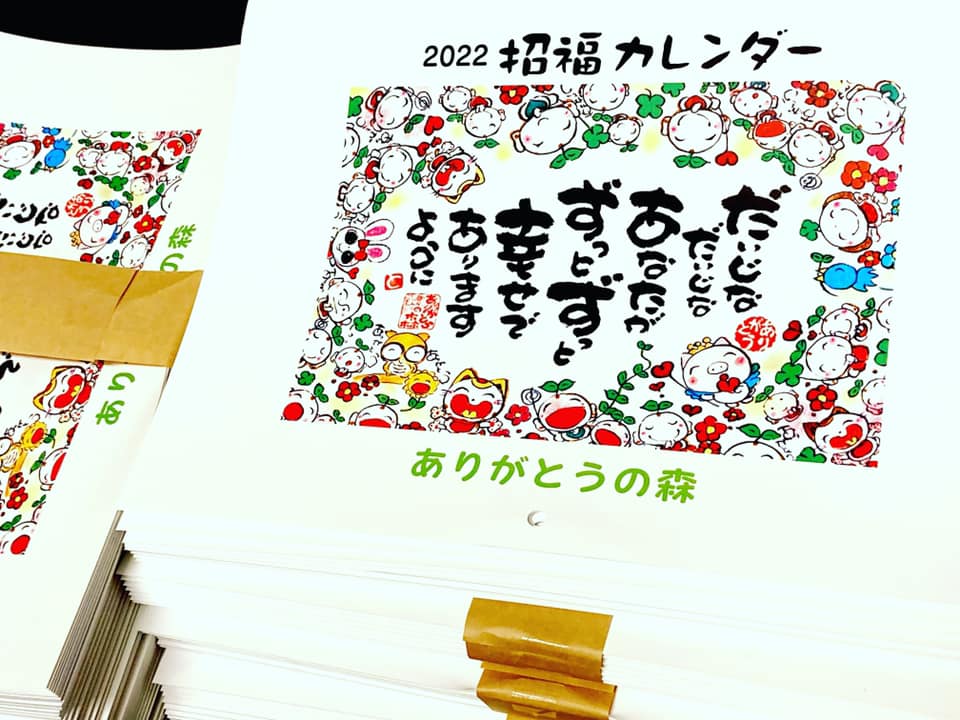 2022 招福カレンダー
だいじな
だいじな
あなたが
ずっとずっと
幸せで
あります
ように
ありがとう
ありがとうの森
の森
あり